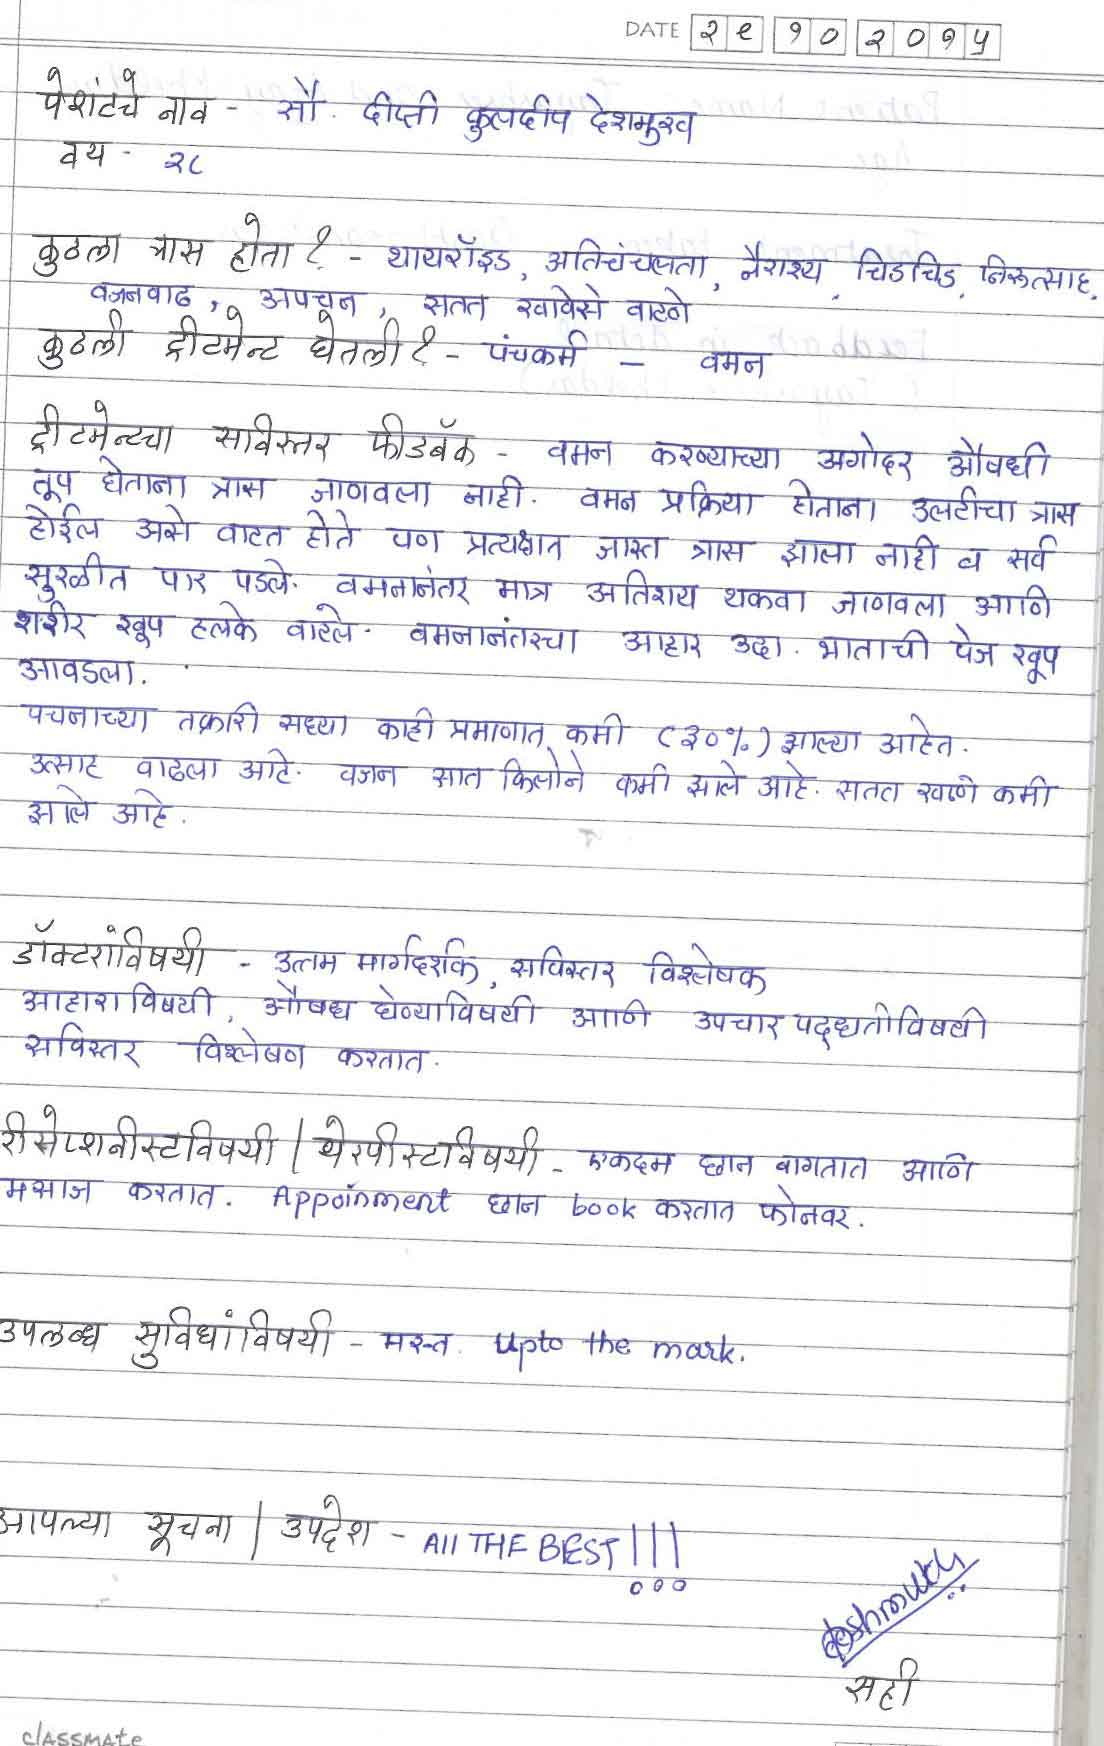 DATE २९ १० २०१५
पेशंटचे नाव - सौ. दीप्ती कुलदीप देशमुख
वय - २८
कुठला त्रास होता? - थायरॉइड, अतिचंचलता, नैराश्य, चिडचिड, निरुत्साह,
वजनवाढ, अपचन, सतत खावेसे वाटणे
कुठली ट्रीटमेन्ट घेतली? - पंचकर्म - वमन
ट्रीटमेन्टचा सविस्तर फीडबॅक - वमन करण्याच्या अगोदर औषधी
तूप घेताना त्रास जाणवला नाही. वमन प्रक्रिया होताना उलटीचा त्रास
होईल असे वाटत होते पण प्रत्यक्षात जास्त त्रास झाला नाही व सर्व
सुरळीत पार पडले. वमनानंतर मात्र अतिशय थकवा जाणवला आणि
शरीर खूप हलके वाटले. वमनानंतरचा आहार उदा. भाताची पेज खूप
आवडला.
पचनाच्या तक्रारी सध्या काही प्रमाणात कमी (३०%) झाल्या आहेत.
उत्साह वाढला आहे. वजन सात किलोने कमी झाले आहे. सतत खाणे कमी
झाले आहे.
डॉक्टरांविषयी - उत्तम मार्गदर्शक, सविस्तर विश्लेषक
आहाराविषयी, औषध घेण्याविषयी आणि उपचार पद्धतीविषयी
सविस्तर विश्लेषण करतात.
रीसेप्शनीस्टविषयी / थेरपीस्टविषयी - एकदम छान वागतात आणि
मसाज करतात. Appoinment छान book करतात फोनवर.
उपलब्ध सुविधांविषयी - मस्त. upto the mark.
आपल्या सूचना / उपदेश - All THE BEST!!!
deshmukh
सही
classmate